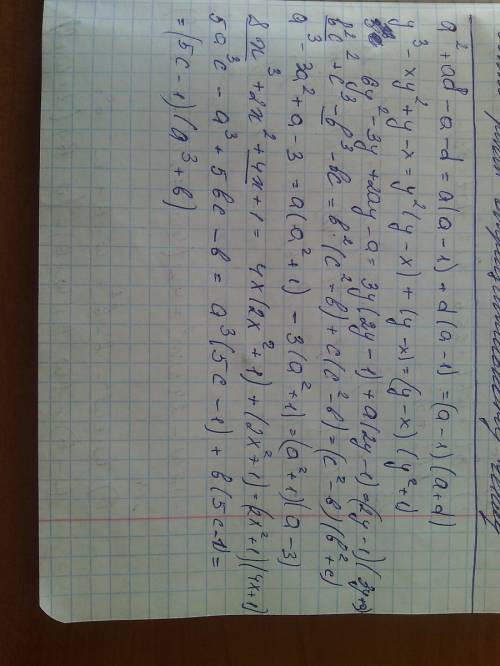 a² + ad - a - d = a(a - 1) + d(a - 1) = (a - 1)(a + d)
y³ - xy² + y - x = y²(y - x) + (y - x) = (y - x)(y² + 1)
6y² - 3y + 2ay - a = 3y(2y - 1) + a(2y - 1) = (2y - 1)(3y + a)
b²c² + c³ - b³ - bc = b²(c² - b) + c(c² - b) = (c² - b)(b² + c)
a³ - 3a² + a - 3 = a(a² + 1) - 3(a² + 1) = (a² + 1)(a - 3)
8x³ + 2x² + 4x + 1 = 4x(2x² + 1) + (2x² + 1) = (2x² + 1)(4x + 1)
5a³c - a³ + 5bc - b = a³(5c - 1) + b(5c - 1) =
= (5c - 1)(a³ + b)